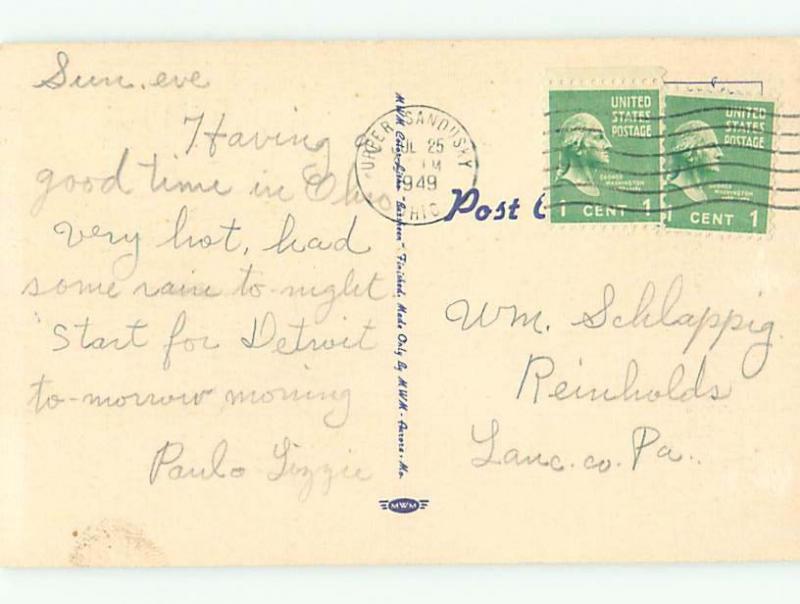 Sun. eve
Having
good time in Ohio
very hot, had
some rain to-night
Start for Detroit
to-morrow morning
Paul & Lizzie
MWM Color-Litho "Bursheen" Finished, Made Only By MWM - Aurora, Mo.
MWM
UPPER SANDUSKY
JUL 25
PM
1949
OHIO
Post C
UNITED
STATES
POSTAGE
GEORGE
WASHINGTON
1 CENT 1
UNITED
STATES
POSTAGE
GEORGE
WASHINGTON
1 CENT 1
Wm. Schlappig
Reinholds
Lanc. co. Pa.